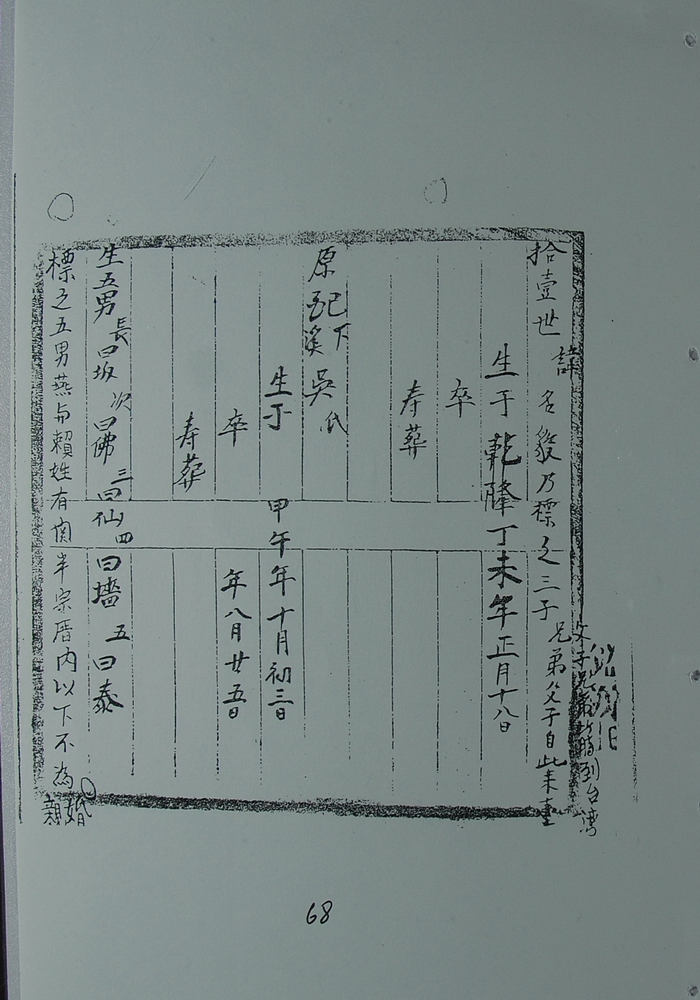 父子兄弟 到台湾
拾壹世 諱 名毅乃標之三子 兄弟父子自此来臺
生于乾隆丁未年正月十八日
卒
寿葬
原配下溪吳氏
生于 甲午年十月初三日
卒 年八月廿五日
寿葬
生五男 長曰坂 次曰佛 三曰仙 四曰墻 五曰泰
標之五男燕与賴姓有 半宗厝内以下不為
婚親
68